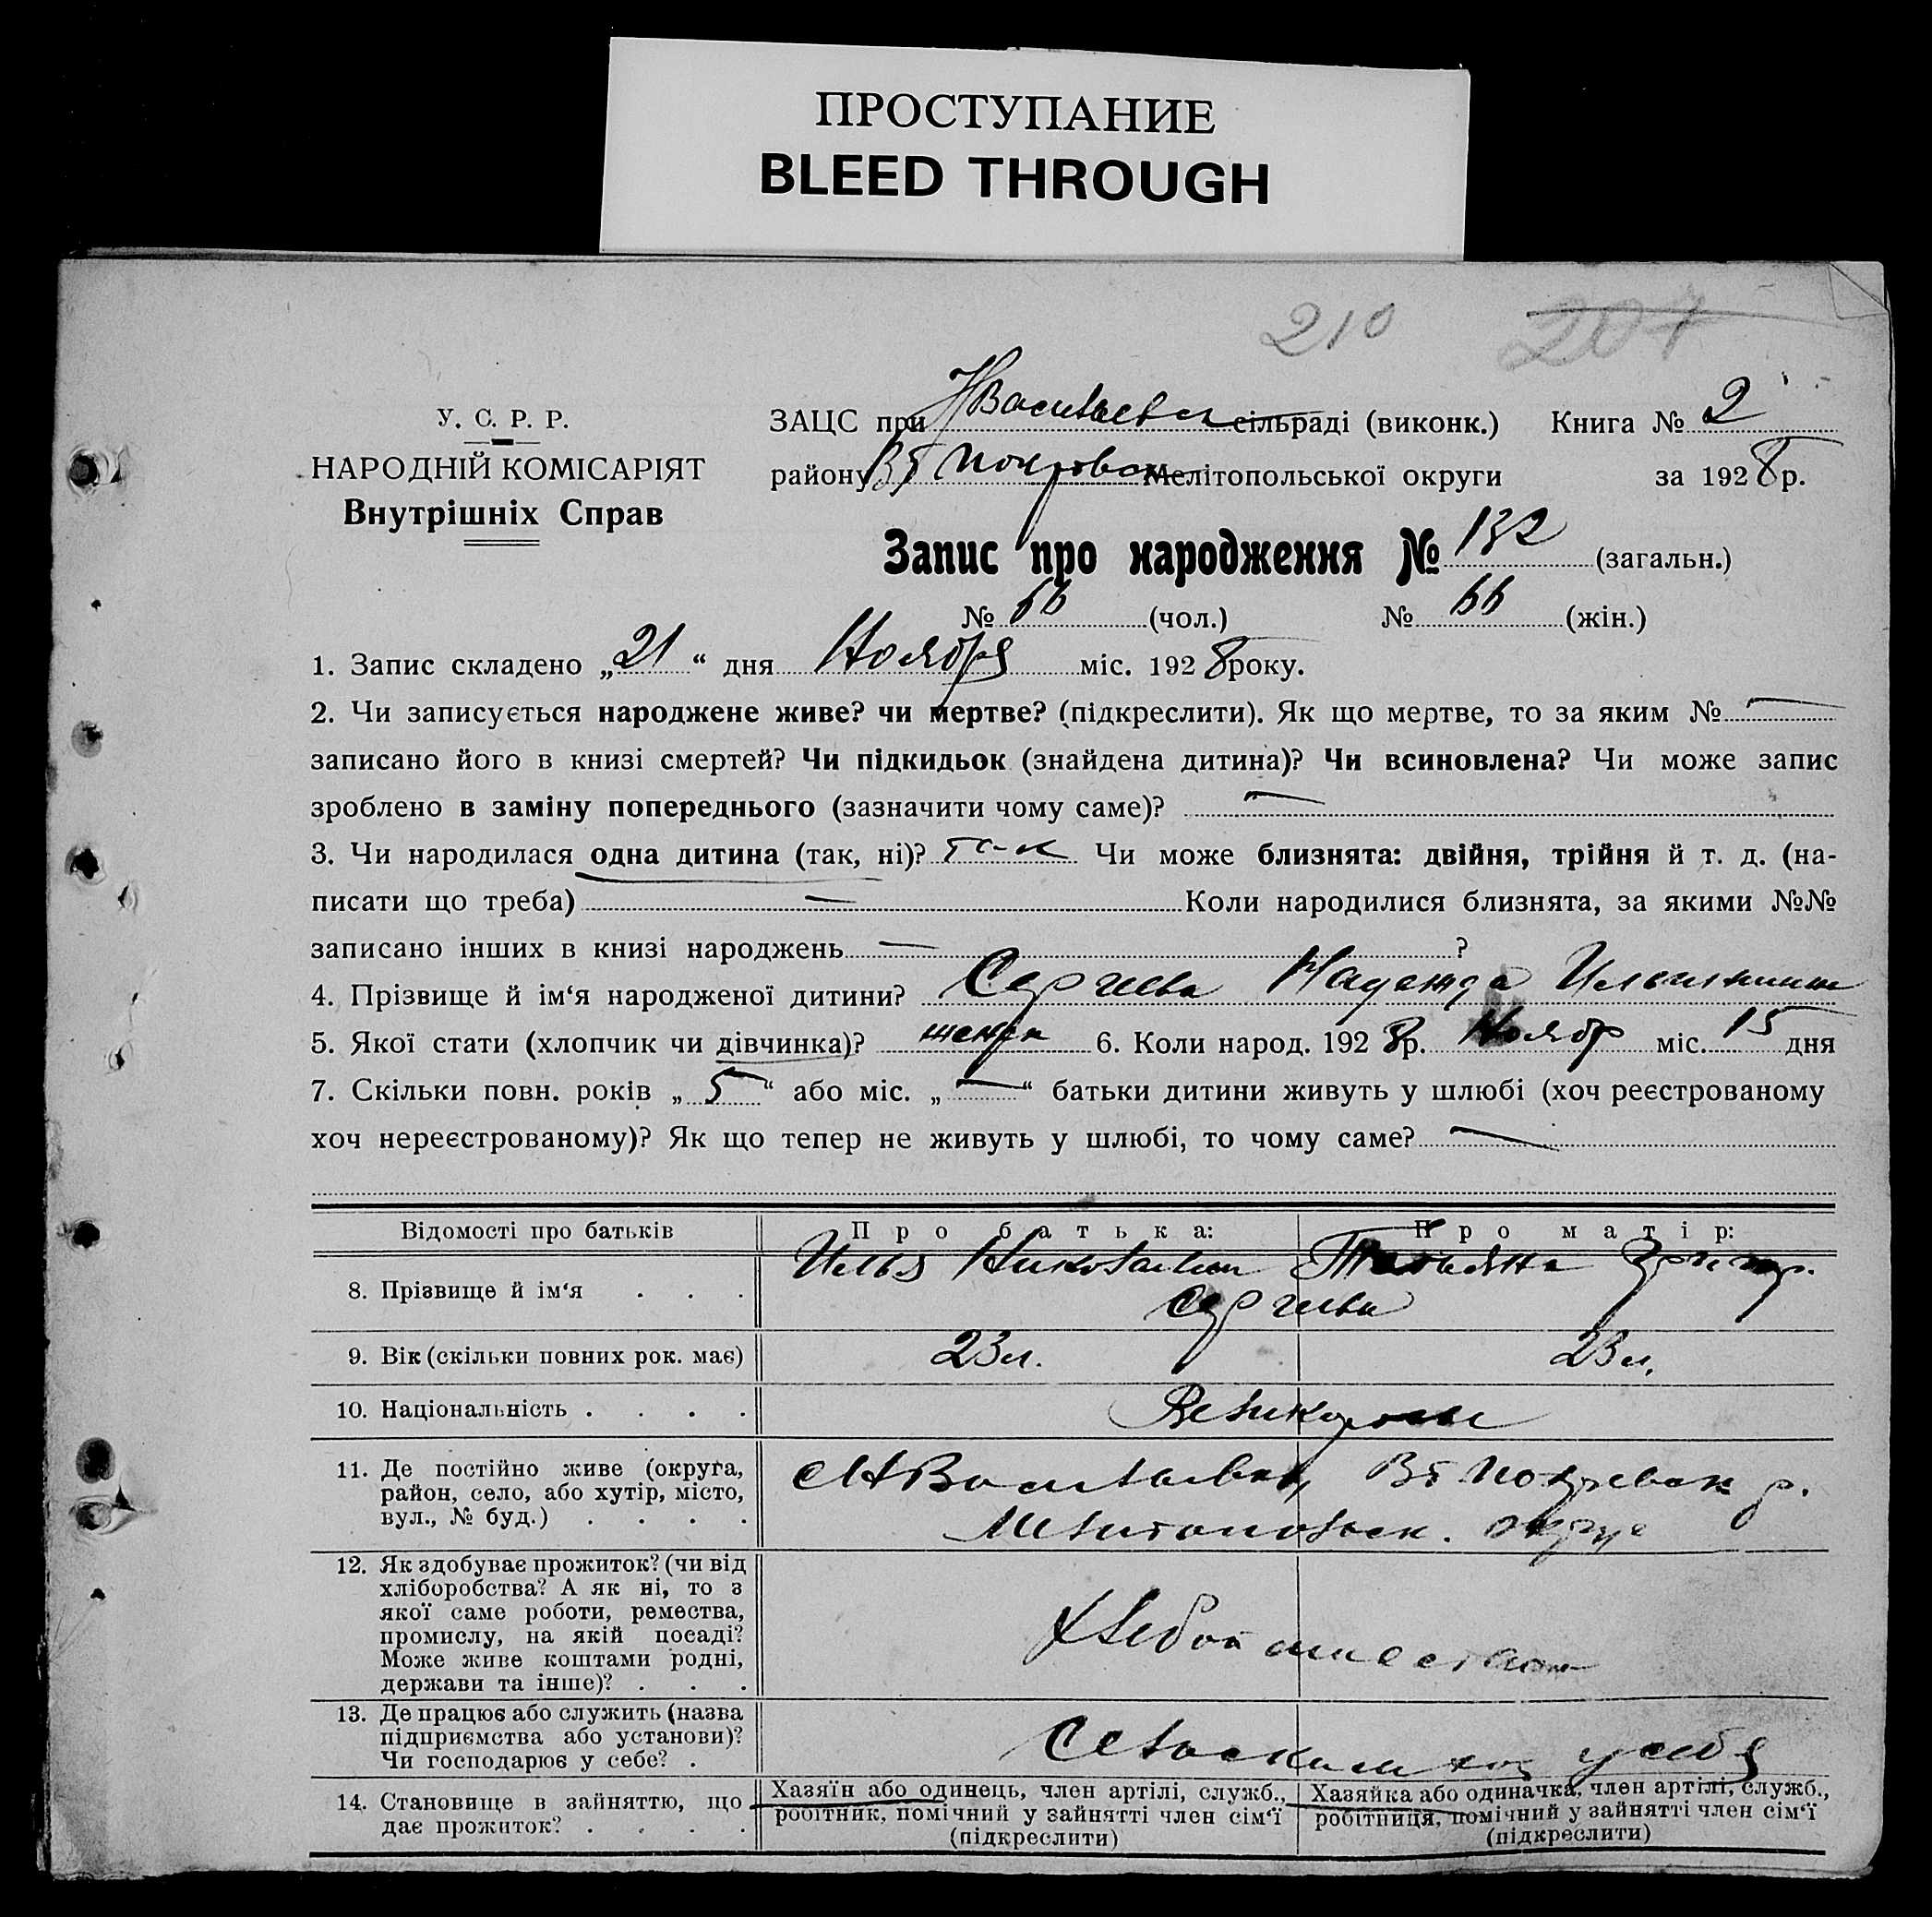 ПРОСТУПАНИЕ
BLEED THROUGH
210 207
У. С. Р. Р.
НАРОДНІЙ КОМІСАРІЯТ
Внутрішніх Справ
ЗАЦС при НВасильевск сільраді (виконк.) Книга № 2
району Вт Покровск Мелітопольської округи за 1928 р.
Запис про народження № 132 (загальн.)
№ 66 (чол.) № 66 (жін.)
1. Запис складено „21“ дня Ноября міс. 1928 року.
2. Чи записується народжене живе? чи мертве? (підкреслити). Як що мертве, то за яким № —
записано його в книзі смертей? Чи підкидьок (знайдена дитина)? Чи всиновлена? Чи може запис
зроблено в заміну попереднього (зазначити чому саме)? —
3. Чи народилася одна дитина (так, ні)? так Чи може близнята: двійня, трійня й т. д. (на-
писати що треба) — Коли народилися близнята, за якими №№
записано інших в книзі народжень — ?
4. Прізвище й ім‘я народженої дитини? Сергеева Надежда Ильинишна
5. Якої стати (хлопчик чи дівчинка)? женск 6. Коли народ. 1928 р. Ноябр міс. 15 дня
7. Скільки повн. років „5“ або міс. „—“ батьки дитини живуть у шлюбі (хоч реєстрованому
хоч нереєстрованому)? Як що тепер не живуть у шлюбі, то чому саме? —
Відомості про батьків Про батька: Про матір:
8. Прізвище й ім‘я . . . Илья Николаевич Татьяна Григор.
Сергеевы
9. Вік (скільки повних рок. має) 23 л. 23 л.
10. Національність . . . . Великоросы
11. Де постійно живе (округа,
район, село, або хутір, місто,
вул., № буд.) . . . .
Вт Покровск р.
Мелитопольск. округе
12. Як здобуває прожиток? (чи від
хліборобства? А як ні, то з
якої саме роботи, ремества,
промислу, на якій посаді?
Може живе коштами родні,
держави та інше)? . . .
Хлебопашеством
13. Де працює або служить (назва
підприємства або установи)?
Чи господарює у себе? .
Сельским хоз у себя
14. Становище в зайняттю, що
дає прожиток? . . . .
Хазяїн або одинець, член артілі, служб.,
робітник, помічний у зайнятті член сім‘ї
(підкреслити)
Хазяйка або одиначка, член артілі, служб.,
робітниця, помічний у зайнятті член сім‘ї
(підкреслити)